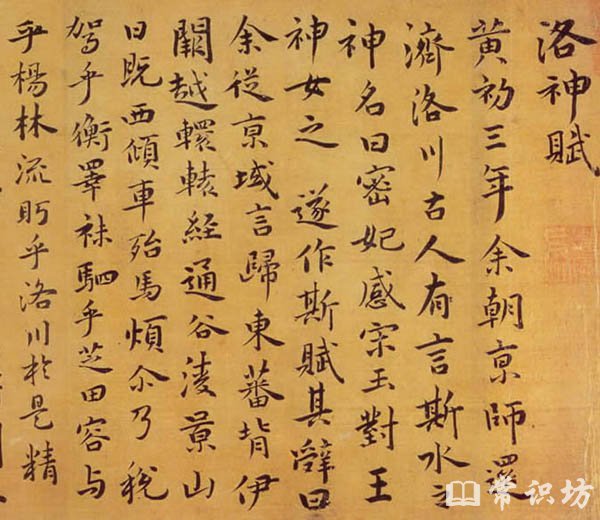 洛神賦
黄初三年余朝京師還
濟洛川古人有言斯水之
神名曰密妃感宋玉對王
神女之遂作斯賦其辭曰
余從京域言歸東蕃背伊
闕越轘轅經通谷陵景山
日既西傾車殆馬煩尒乃稅
駕乎衡睪秣駟乎芝田容与
乎楊林流眄乎洛川於是精
常识坊